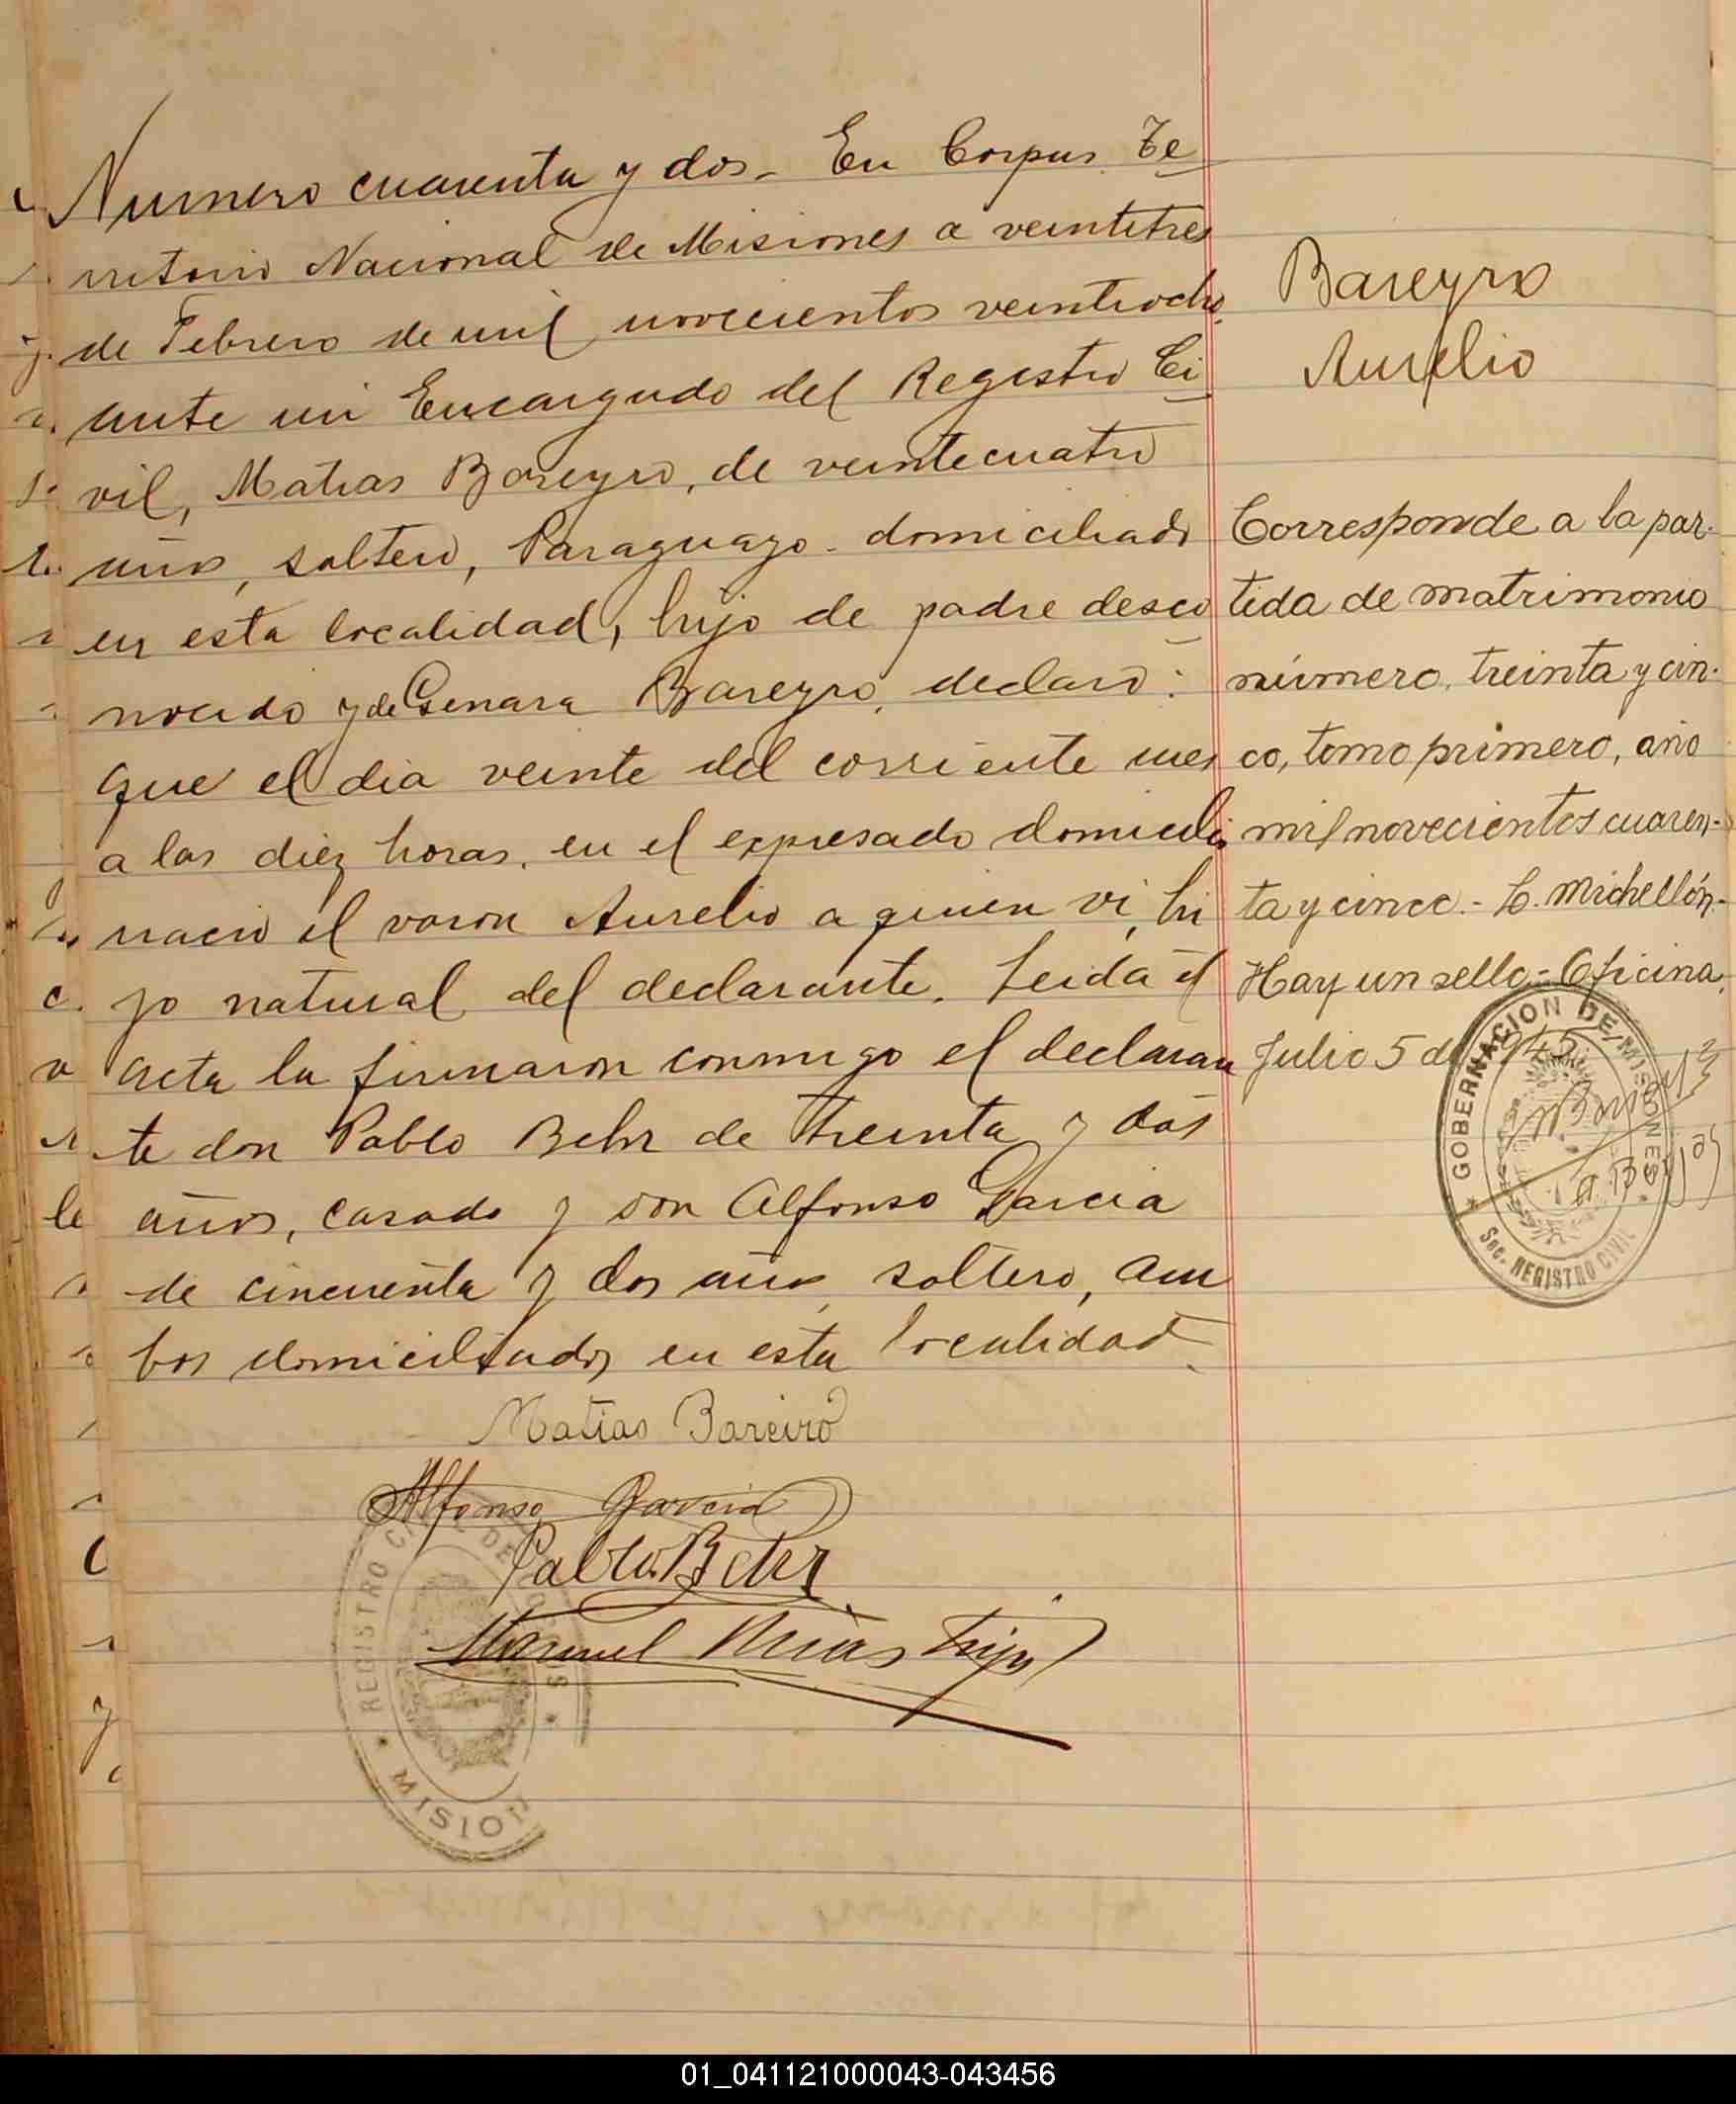 Numero cuarenta y dos. En Corpus Te
rritorio Nacional de Misiones a veintitres
de Febrero de mil novecientos veintiocho
ante mi Encargado del Registro Ci
vil, Matias Bareyro, de veintecuatro
años, soltero, Paraguayo domiciliado
en esta localidad, hijo de padre desco
nocido y de Genara Bareyro, declaro:
que el dia veinte del corriente mes
a las diez horas, en el expresado domicilio
nacio el varon Aurelio a quien vi, hi
jo natural del declarante. Leida el
acta la firmaron conmigo el declaran
te don Pablo Behr de treinta y dos
años, casado y don Alfonso Garcia
de cincuenta y dos años soltero, am
bos domiciliados en esta localidad
Matias Bareiro
Alfonso Garcia
Pablo Behr
Manuel hijo
REGISTRO CIVIL DE
MISION
Bareyro
Aurelio
Corresponde a la par-
tida de matrimonio
número, treinta y cin-
co, tomo primero, año
mil novecientos cuaren-
ta y cinco.- L. Michellón.-
Hay un sello.- Oficina,
Julio 5 de 1945
GOBERNACION DE MISIONES
Sec. REGISTRO CIVIL
01_041121000043-043456